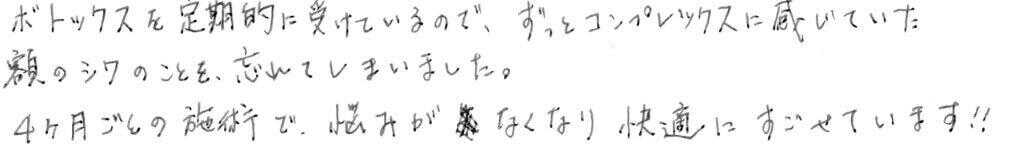 ボトックスを定期的に受けているので、ずっとコンプレックスに感じていた
額のシワのことを、忘れてしまいました。
4ヶ月ごとの施術で、悩みがなくなり快適にすごせています!!